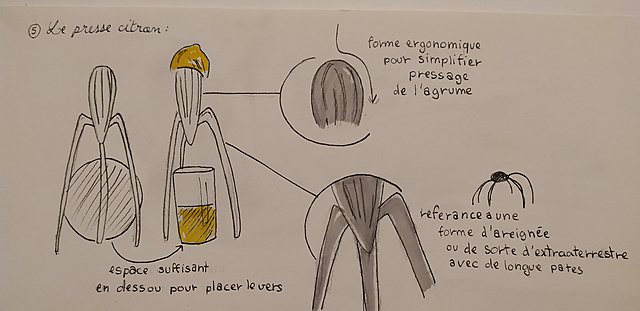 ⑤ Le presse citron :
forme ergonomique
pour simplifier
pressage
de l'agrume
réferance a une
forme d'areignée
ou de sorte d'extraaterrestre
avec de longue pates
espace suffisant
en dessou pour placer le vers